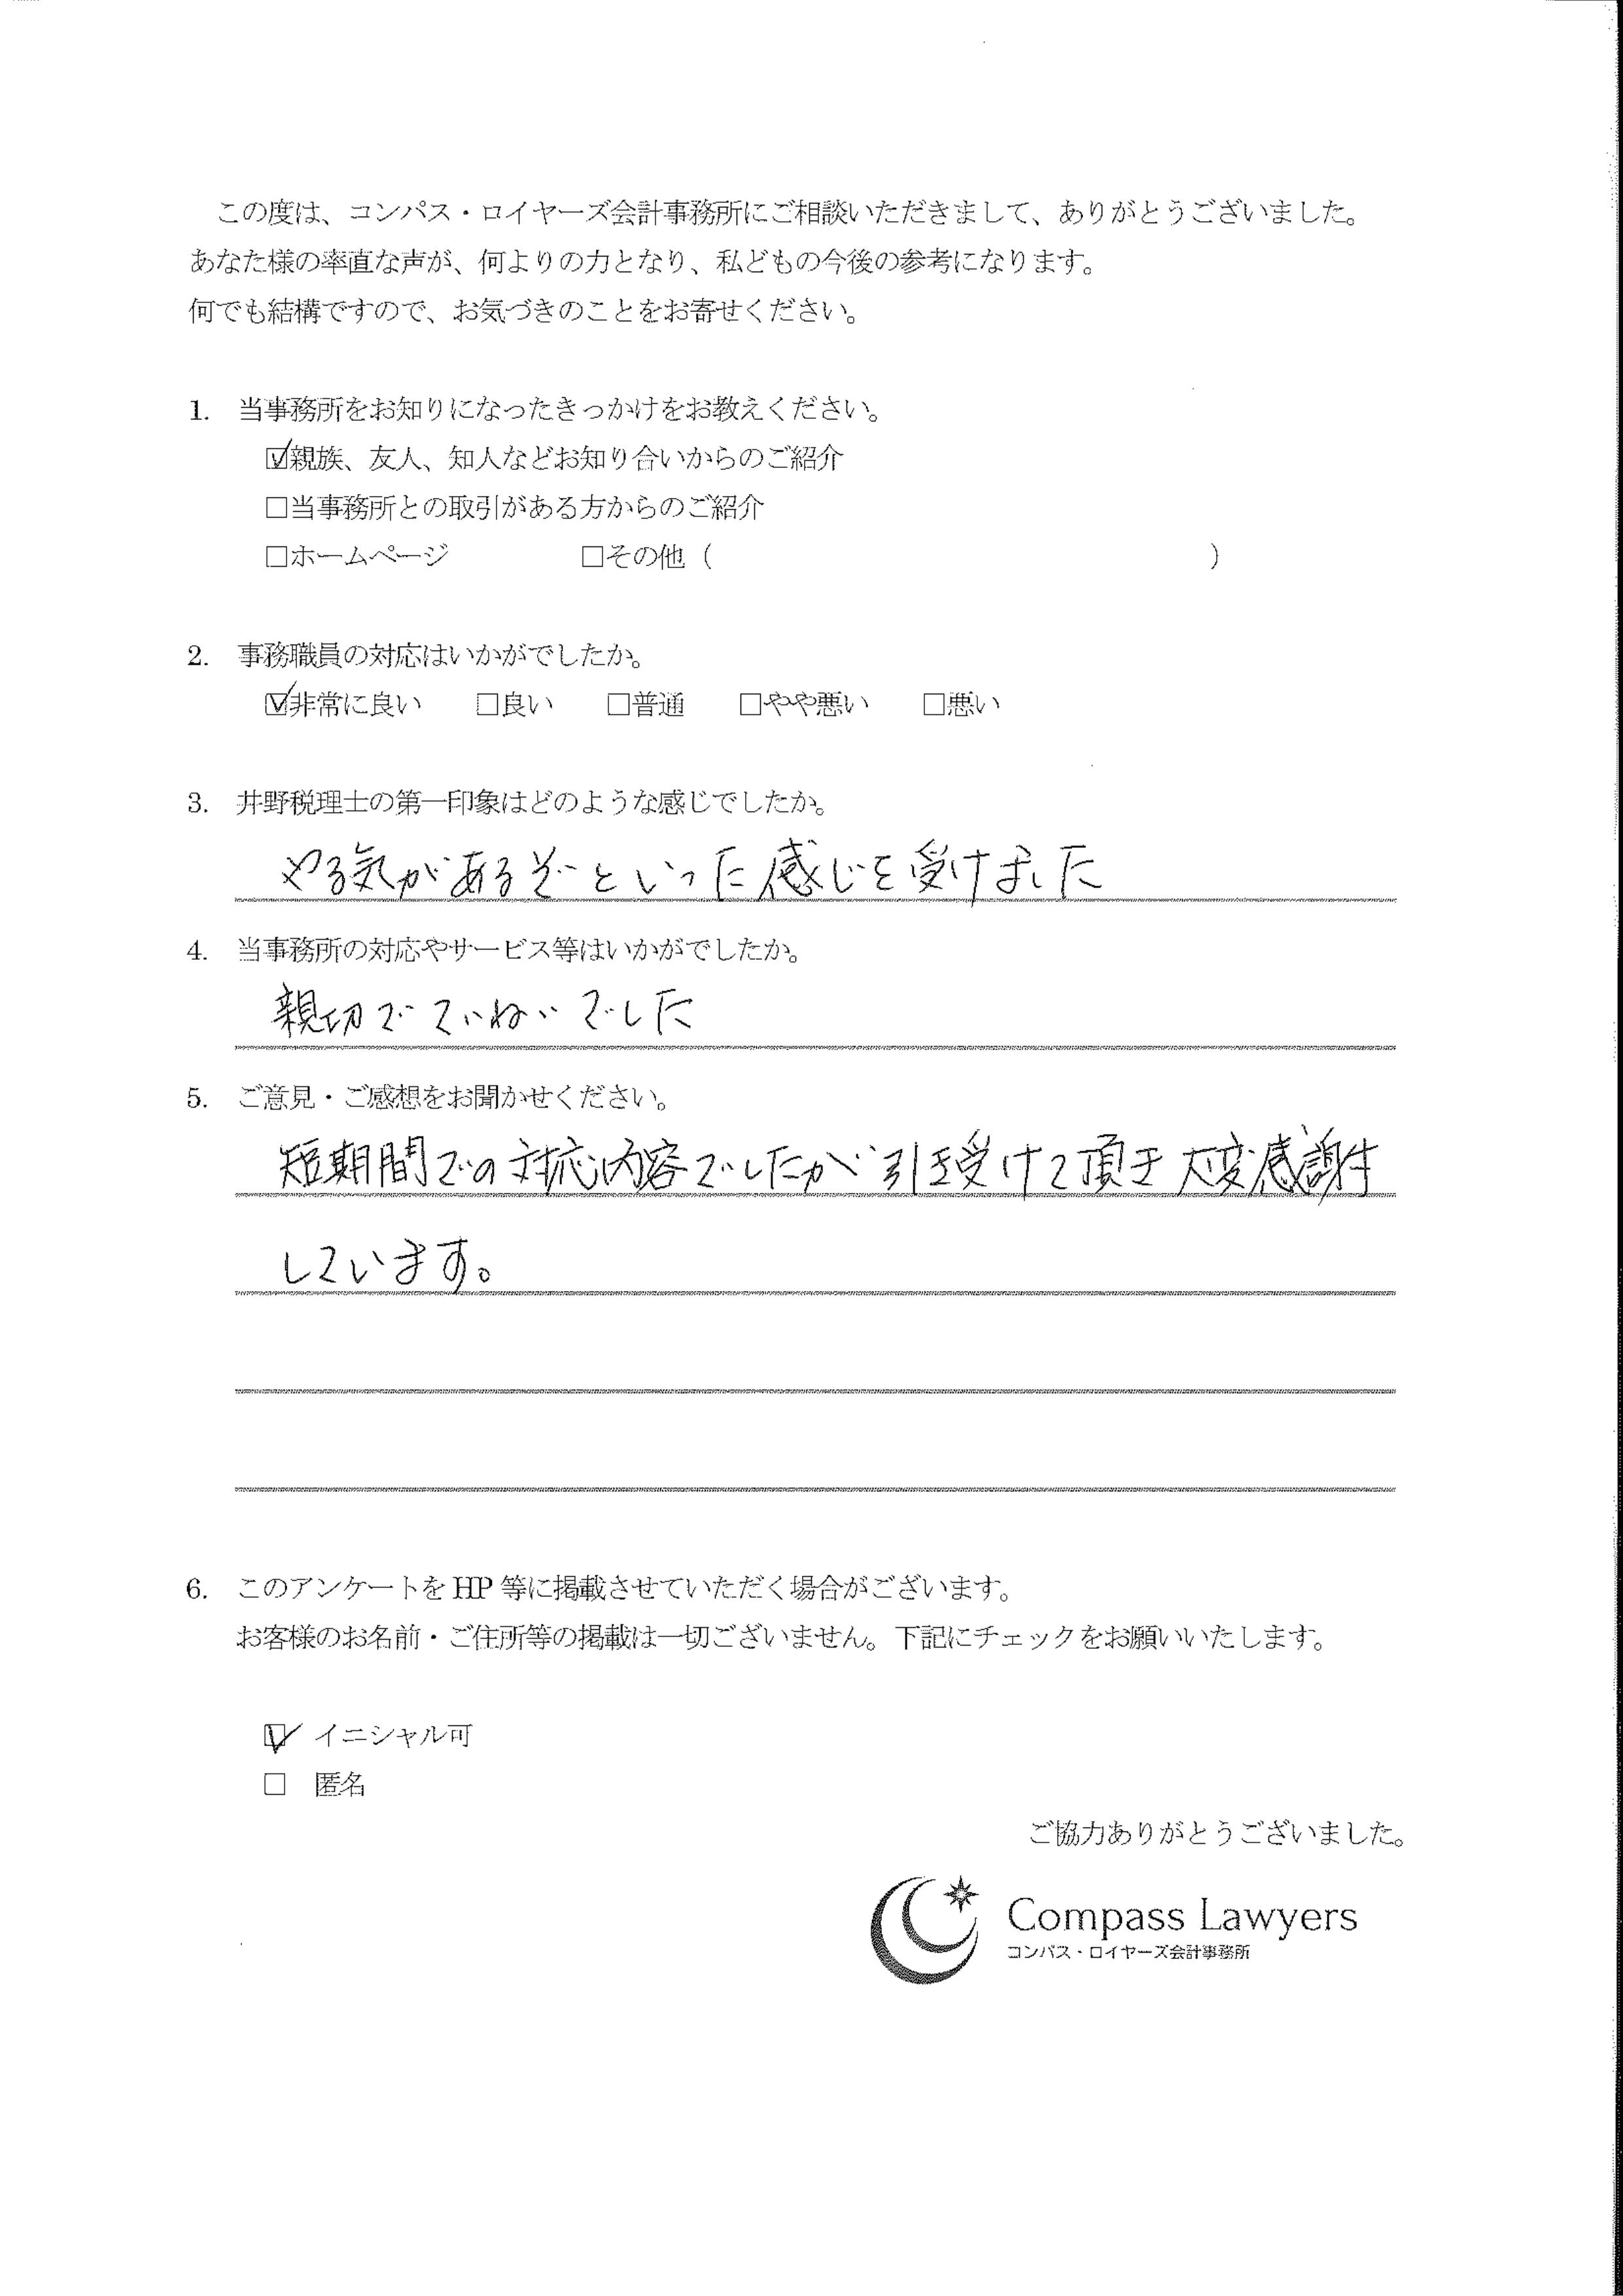 この度は、コンパス・ロイヤーズ会計事務所にご相談いただきまして、ありがとうございました。
あなた様の率直な声が、何よりの力となり、私どもの今後の参考になります。
何でも結構ですので、お気づきのことをお寄せください。
1. 当事務所をお知りになったきっかけをお教えください。
☑親族、友人、知人などお知り合いからのご紹介
□当事務所との取引がある方からのご紹介
□ホームページ □その他（ ）
2. 事務職員の対応はいかがでしたか。
☑非常に良い □良い □普通 □やや悪い □悪い
3. 井野税理士の第一印象はどのような感じでしたか。
やる気があるぞといった感じを受けました
4. 当事務所の対応やサービス等はいかがでしたか。
親切でていねいでした
5. ご意見・ご感想をお聞かせください。
短期間での対応内容でしたが引き受けて頂き大変感謝
しています。
6. このアンケートをHP等に掲載させていただく場合がございます。
お客様のお名前・ご住所等の掲載は一切ございません。下記にチェックをお願いいたします。
☑ イニシャル可
□ 匿名
ご協力ありがとうございました。
Compass Lawyers
コンパス・ロイヤーズ会計事務所